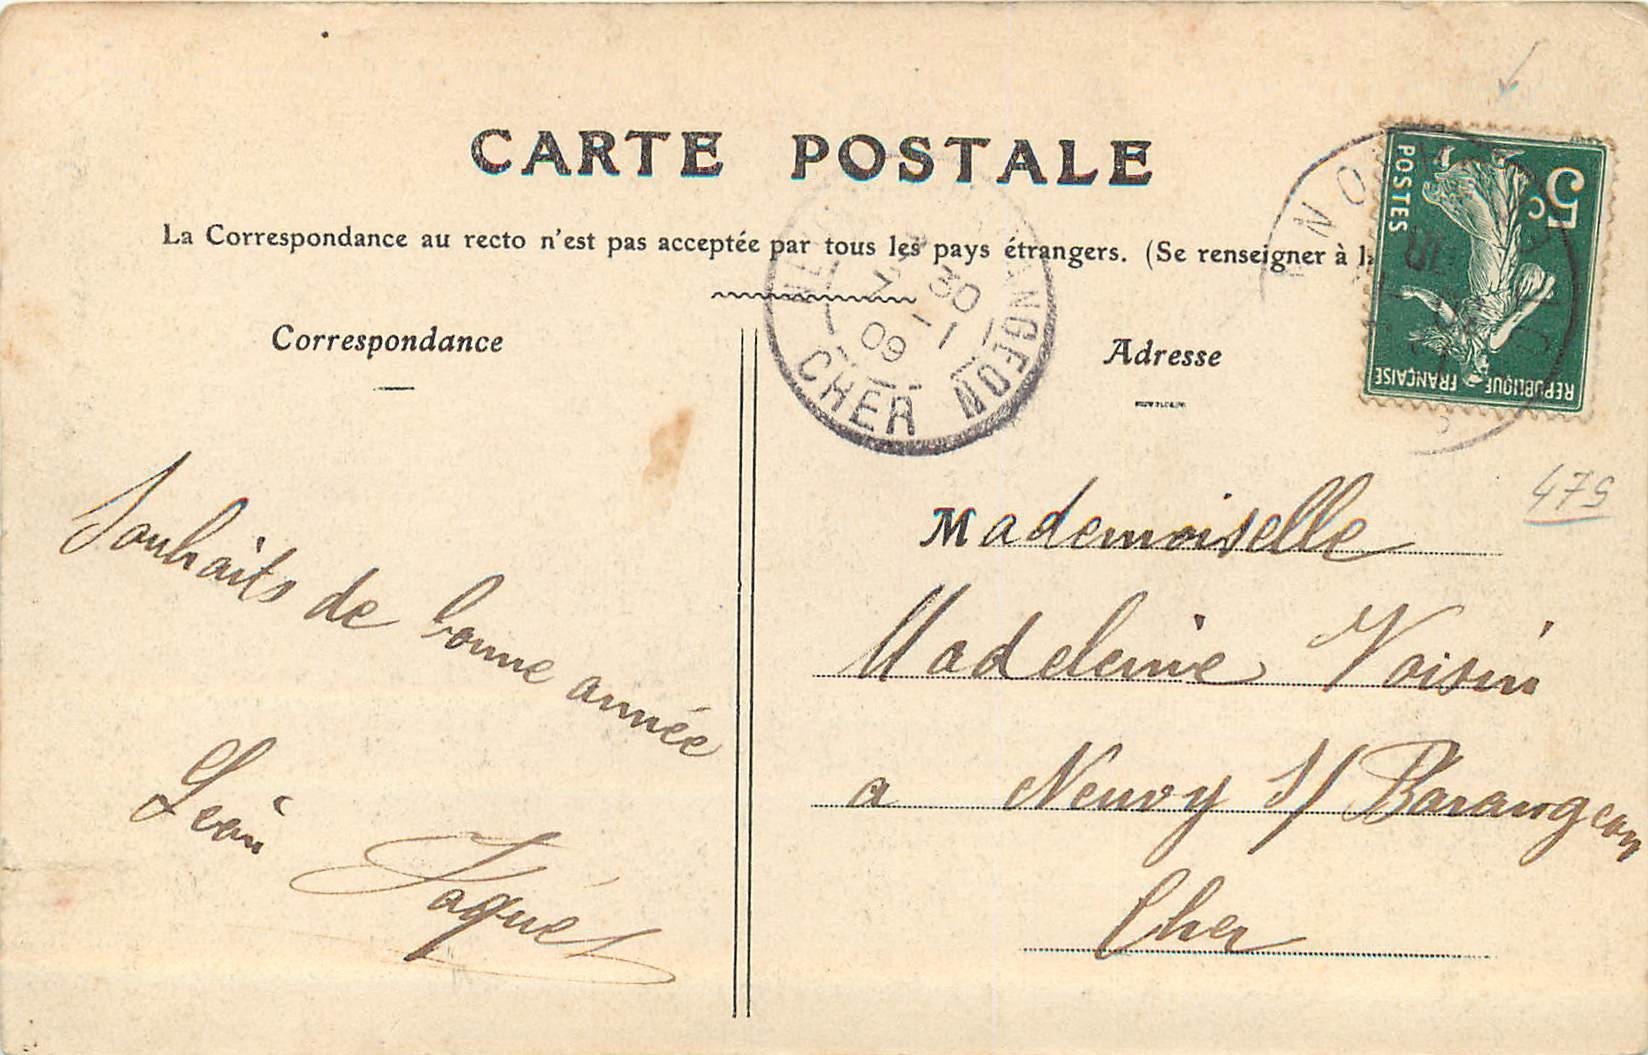 CARTE POSTALE
La Correspondance au recto n'est pas acceptée par tous les pays étrangers. (Se renseigner à la
Correspondance
Adresse
Souhaits de bonne année
Léon Jaquet
Mademoiselle
Madeleine Voisin
a Neuvy s/ Barangeon
Cher
475
5c
POSTES
REPUBLIQUE FRANÇAISE
ANGEON
CHER
30
1-1
09